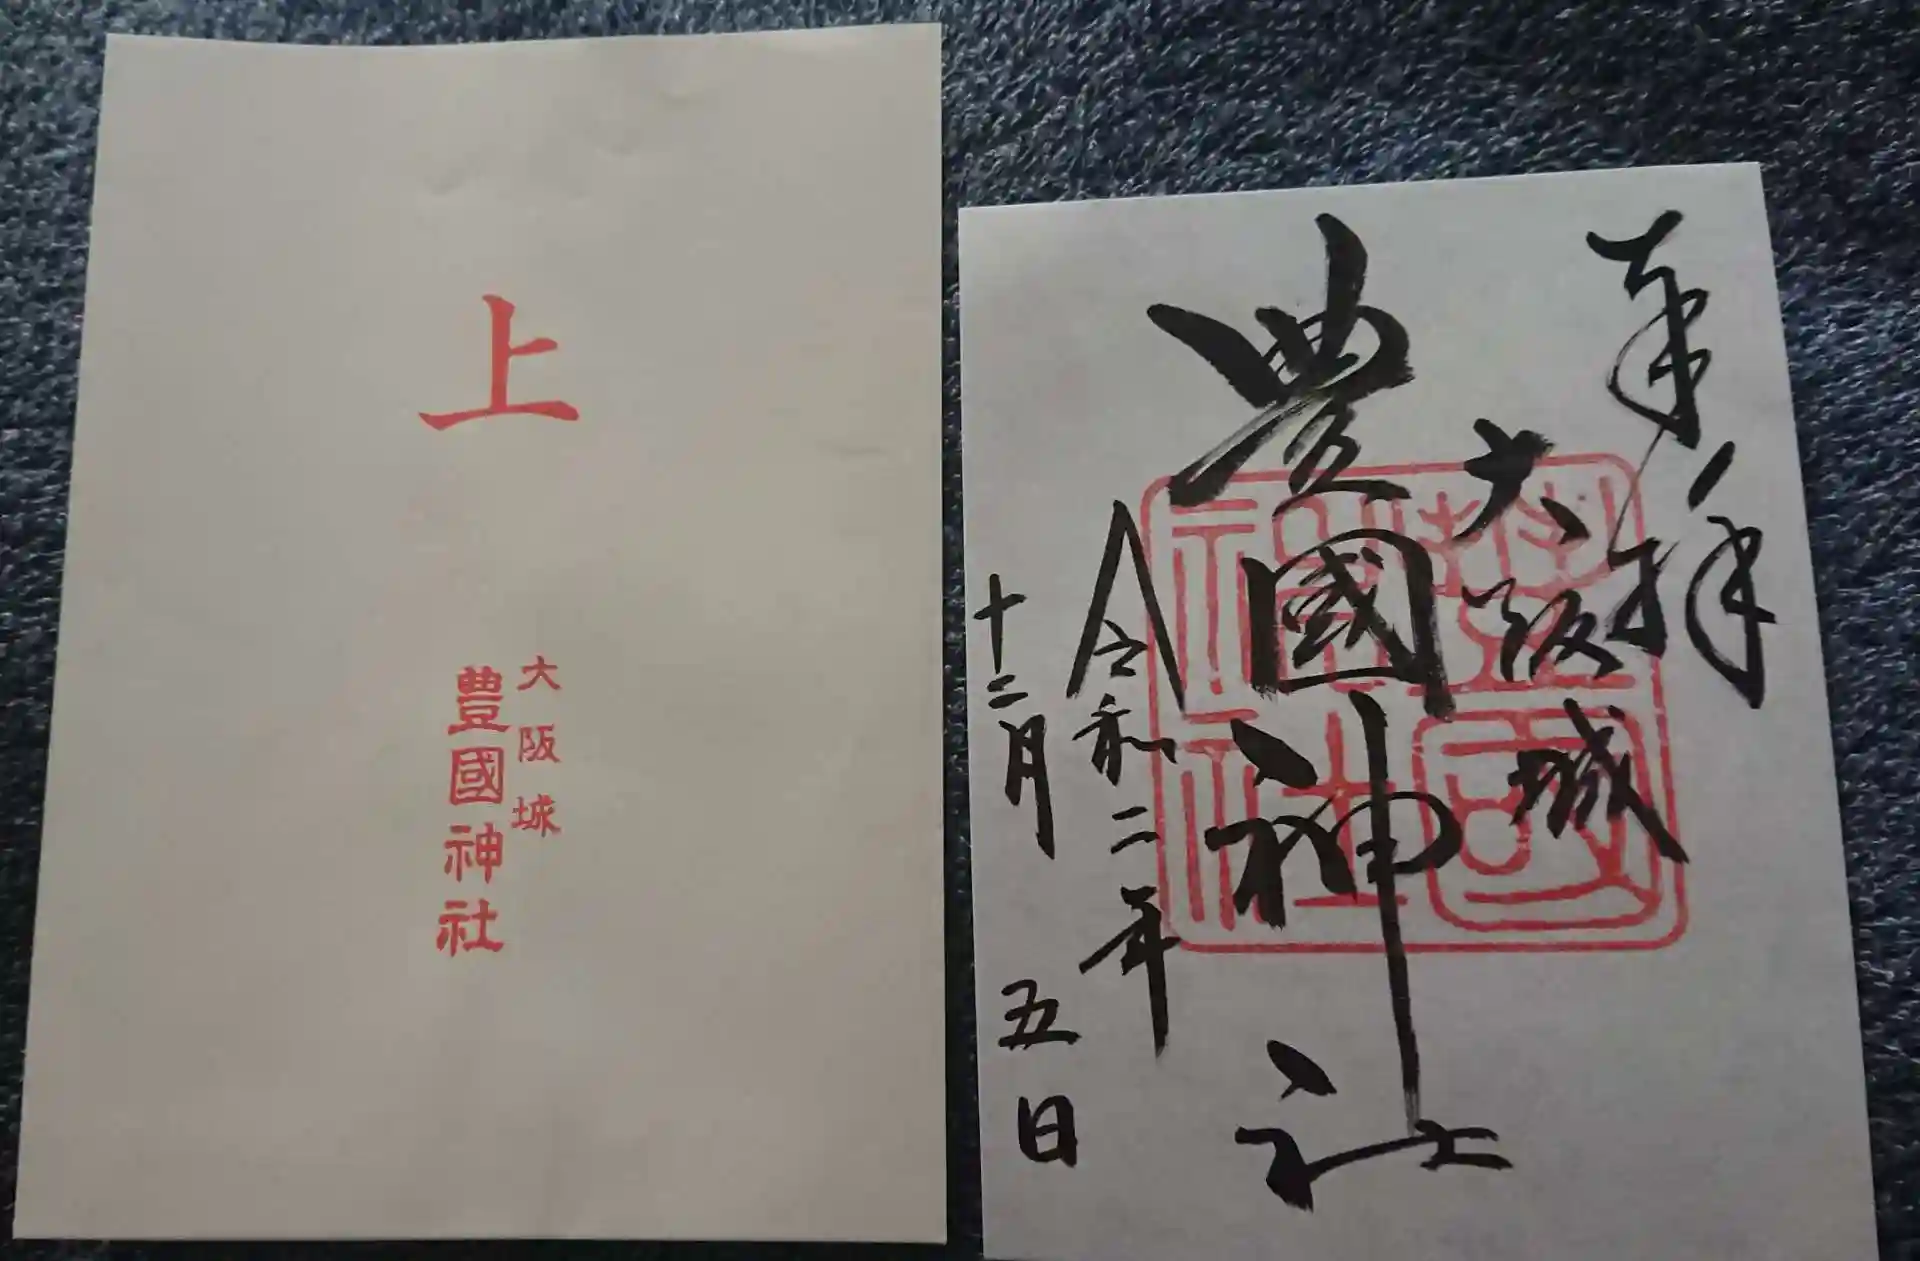 上
大阪城
豊國神社
奉拝
大阪城
豊國神社
令和二年
十二月
五日
豊國神社